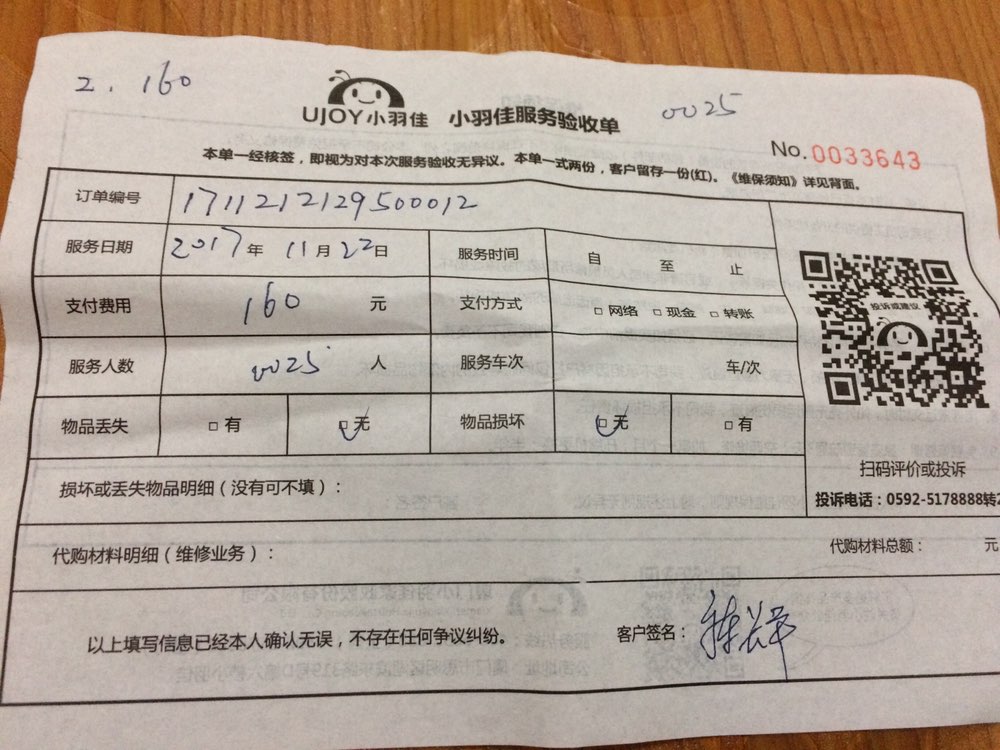 2. 160
UJOY小羽佳 小羽佳服务验收单
0025
No.0033643
本单一经核签，即视为对本次服务验收无异议。本单一式两份，客户留存一份(红)。《维保须知》详见背面。
订单编号 1711212129500012
服务日期 2017年 11月 22日 服务时间 自 至 止
投诉或建议
支付费用 160 元 支付方式 □网络 □现金 □转账
服务人数 0025 人 服务车次 车/次
物品丢失 □有 □无 物品损坏 □无 □有
扫码评价或投诉
损坏或丢失物品明细（没有可不填）：
投诉电话：0592-5178888转2
代购材料明细（维修业务）： 代购材料总额： 元
以上填写信息已经本人确认无误，不存在任何争议纠纷。 客户签名：